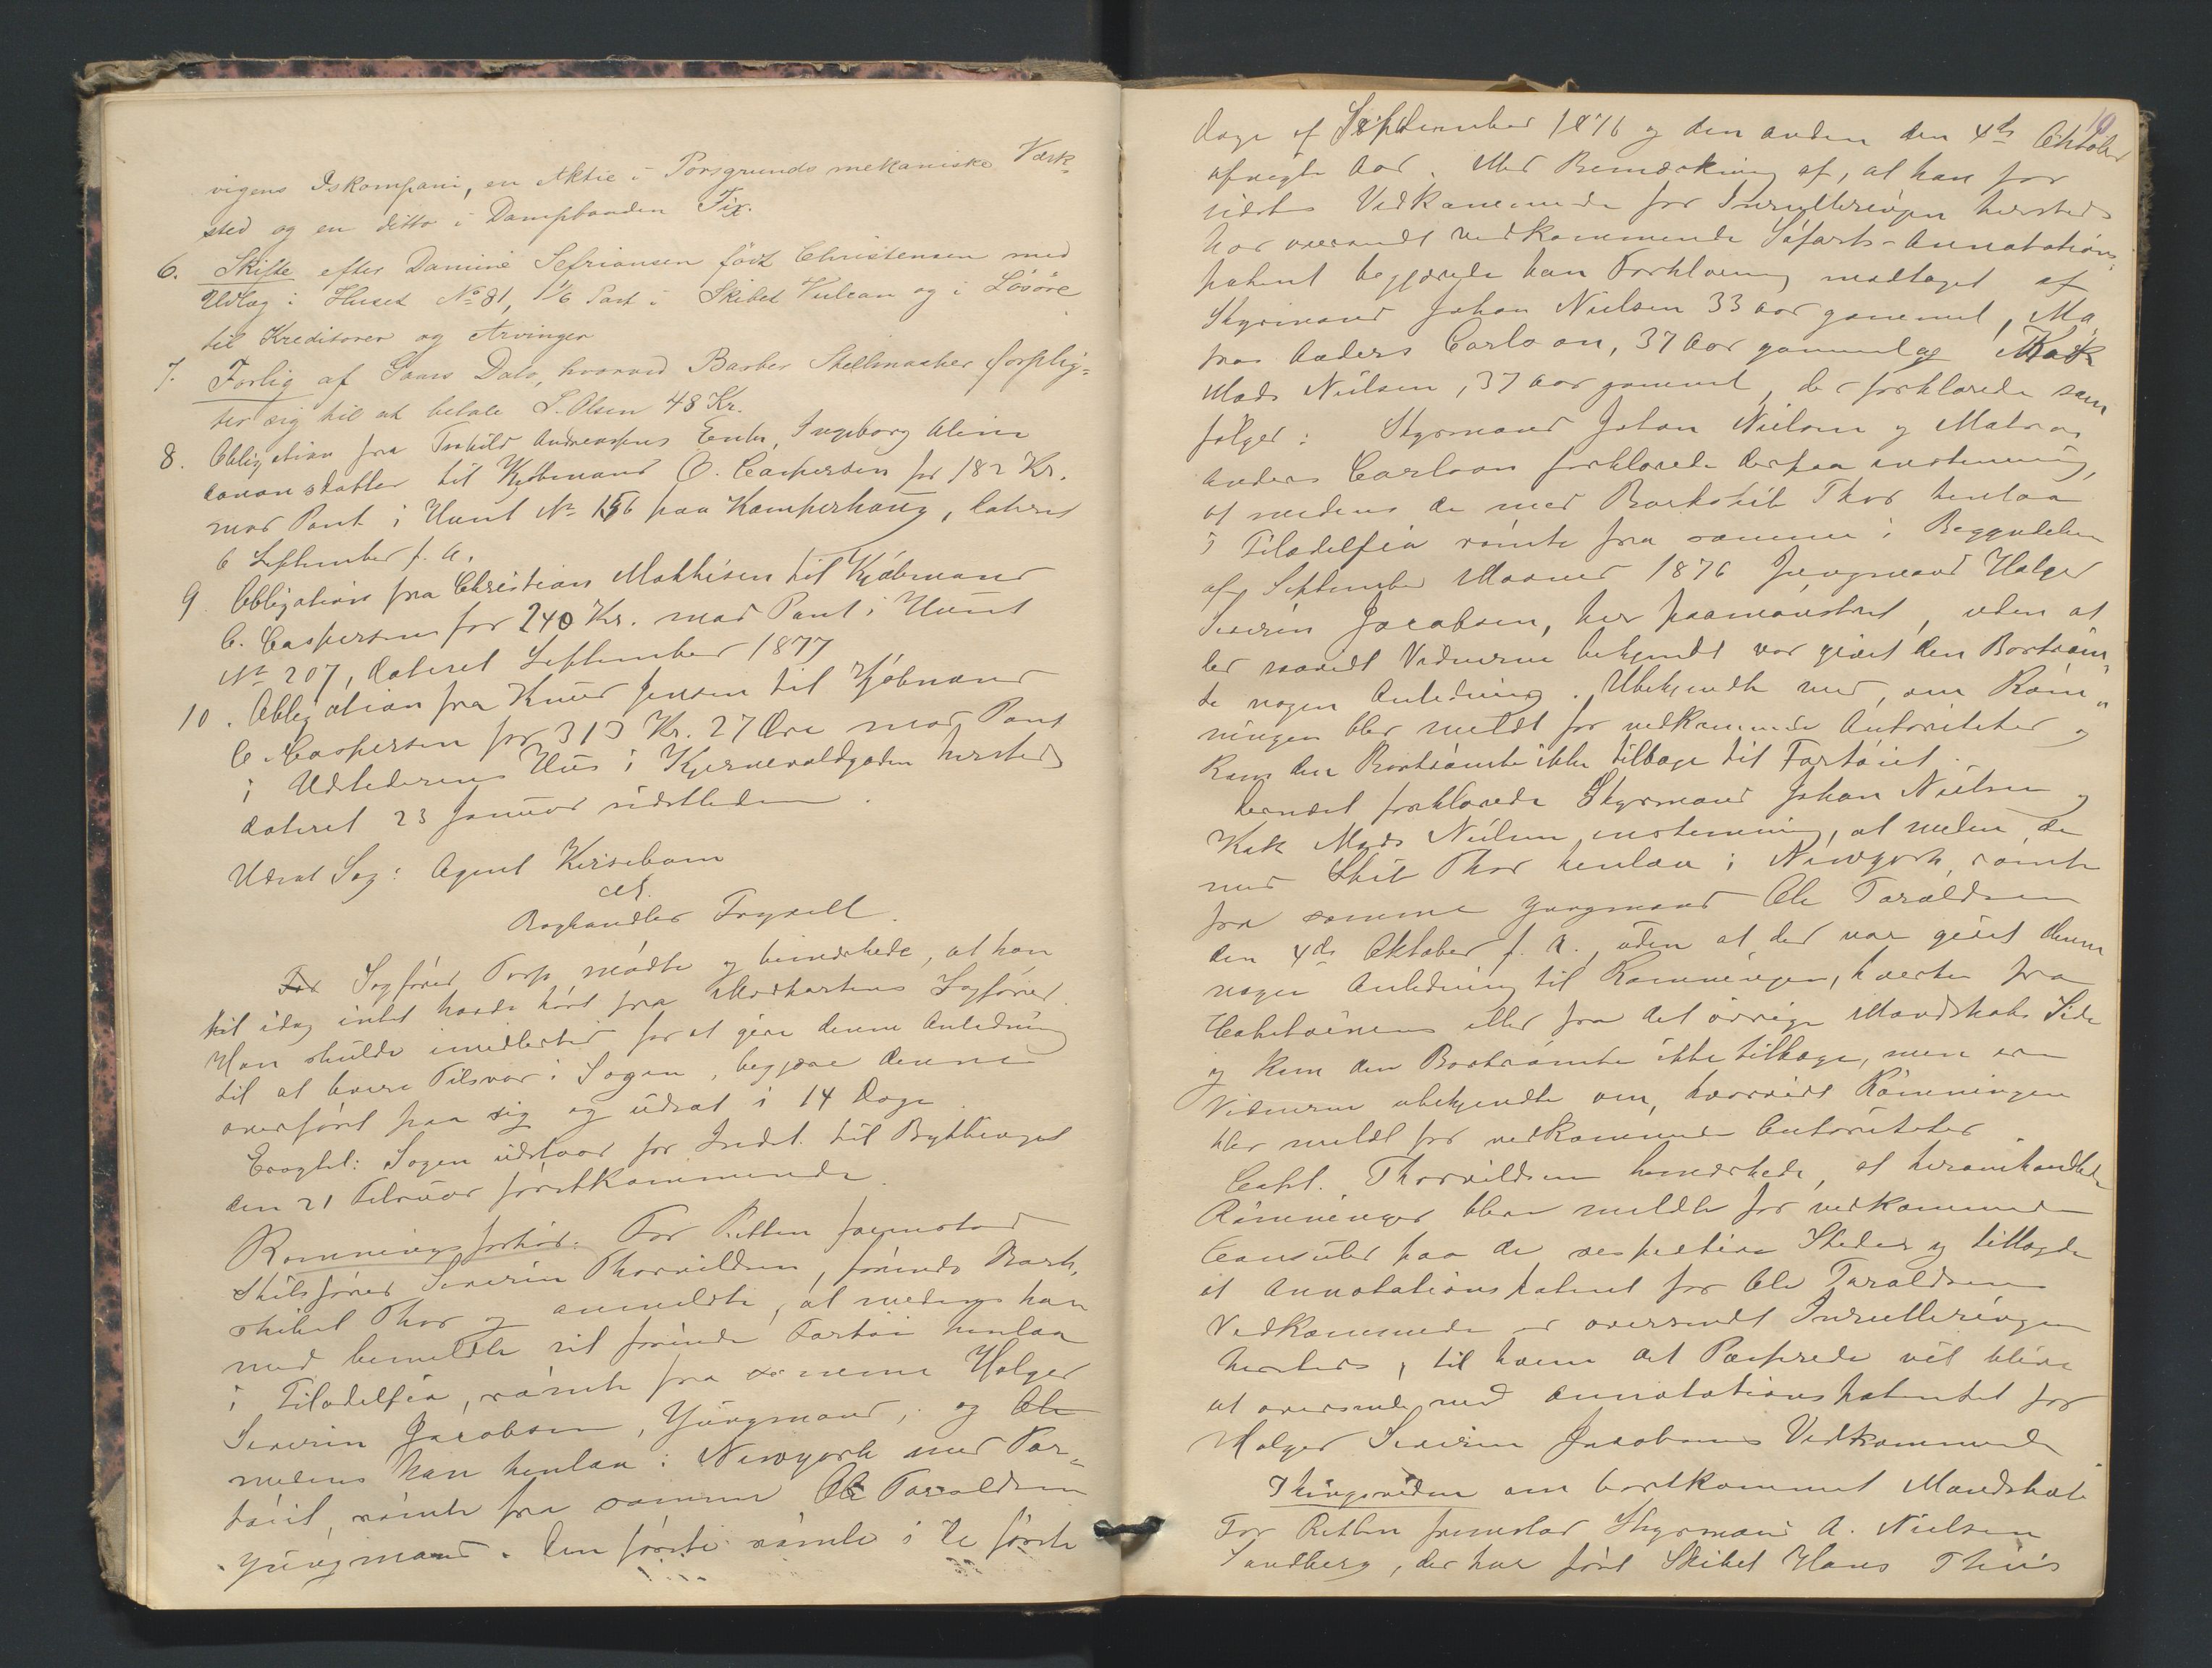 vigens Iskompani, en Aktie i Porsgrunds mekaniske Værk-
sted og en ditto i Dampbaaden Fix.
6. Skifte efter Damine Sefriansen født Christensen med
Udlæg i Huset No 81, 1/6 Part i Skibet Vulcan og i Løsøre
til Kreditorer og Arvinger
7. Forlig af Dato, hvorved Barber Skellmacher forplig-
ter sig til at betale S. Olsen 48 Kr.
8. Obligation fra Andreassens Enke, Ingeborg Aline
til Kjøbmand C. Caspersen for 182 Kr.
mod Pant i Huset No 156 paa Kamperhaug, dateret
6 September f. A.
9. Obligation fra Christian Mathisen til Kjøbmand
C. Caspersen for 240 Kr. mod Pant i Huset
No 207, dateret September 1877
10. Obligation fra Knud Jensen til Kjøbmand
C. Caspersen for 313 Kr. 27 Øre mod Pant
i Udstederens Hus i hersteds
dateret 23 Januar sidstleden.
Udsat Sag: Agent Kirsebom
ctr.
Boghandler Trysell.
For Sagfører Torp mødte og bemærkede, at han
til idag intet havde hørt fra Modpartens Sagfører.
Han skulde imidlertid for at give denne Anledning
til at levere Tilsvar i Sagen, begjære denne
overført paa sig og udsat i 14 Dage
Eragtet: Sagen udstaar for Indst. til Bythinget
den 21 Februar førstkommende.
Rømningsforhør. For Retten fremstod
Skibsfører Severin Thorvildsen, førende Bark-
skibet Thor og anmeldte, at medens han
med bemeldte sit førende Fartøi henlaa
i Filadelfia, rømte fra samme Holger
Severin Jacobsen, Jungmand, og Ole
medens han henlaa i Newyork med Far-
tøiet, rømte fra samme Ole Taraldsen
Jungmand. Den første rømte i de første
10
Dage af September 1876 og den anden den 4de Oktober
afvigte Aar. Med Bemærkning af, at han for
sidstes Vedkommende for Inrulleringen hersteds
har oversendt vedkommende Søfarts-Annotations-
patent begjærede han Forklaring modtaget af
Styrmand Johan Nielsen 33 Aar gammel, Ma-
tros Anders Carlson, 37 Aar gammel og Kok
Mads Nielsen, 37 Aar gammel, der forklarede som
følger: Styrmand Johan Nielsen og Matros
Anders Carlson forklarede derpaa enstemmig,
at medens de med Barkskib Thor henlaa
i Filadelfia rømte fra samme i Begyndelsen
af September Maaned 1876 Jungmand Holger
Severin Jacobsen, her paamønstret, uden at
der saavidt Vidnerne bekjendt var givet den Bortrøm-
te nogen Anledning. Ubekjendte med, om Røm-
ningen blev meldt for vedkommende Autoriteter og
kom den Bortrømte ikke tilbage til Fartøiet.
Dernæst forklarede Styrmand Johan Nielsen og
Kok Mads Nielsen enstemmig, at meden de
med Skib Thor henlaa i Newyork, rømte
fra samme Jungmand Ole Taraldsen
den 4de Oktober f. A., uden at der var givet denne
nogen Anledning til Rømningen, hverken fra
Kapteinens eller fra det øvrige Mandskabs Side
og kom den Bortrømte ikke tilbage, men ere
Vidnerne ubekjendte om, hvorvidt Rømningen
blev meldt for vedkommende Autoriteter.
Capt. Thorvildsen bemærkede, at heromhandlede
Rømninger blev meldte for vedkommende
Consuler paa de respektive Steder og tillagde
at Annotationspatent for Ole Taraldsens
Vedkommende er oversendt Inrulleringen
hersteds, til hvem det Passerede vil blive
at oversende med Annotationspatentet for
Holger Severin Jacobsens Vedkommende
Thingsvidne om bortkommet Mandskab
For Retten fremstod Styrmand A. Nielsen
Sandberg, der har ført Skibet Hans Thiis